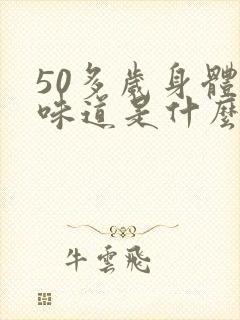 50多歲身體
味道是什麼
牛雲飛